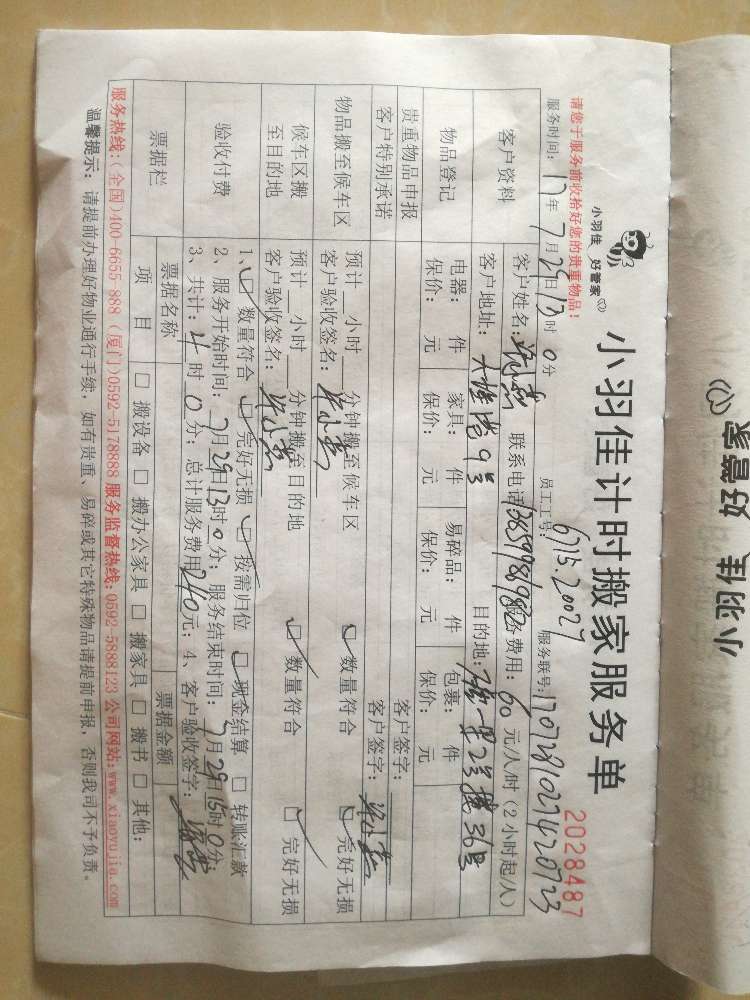 小羽佳 好管家
小羽佳 好管家
小羽佳计时搬家服务单
2028487
请您于服务前收拾好您的贵重物品:
员工工号: 6715.20027
服务联号: 170728102742
服务时间: 17年7月29日13时0分
客户资料
客户姓名: 联系电话: 服务费用: 60元/人/时(2小时起/人)
客户地址: 9号 目的地:
物品登记
电器: 件 家具: 件 易碎品: 件 包裹: 件
保价: 元 保价: 元 保价: 元 保价: 元
贵重物品申报 客户签字:
客户特别承诺 客户签字:
物品搬至候车区
预计__小时__分钟搬至候车区 □数量符合 □完好无损
客户验收签名:
候车区搬至目的地
预计__小时__分钟搬至目的地 □数量符合 □完好无损
客户验收签名:
验收付费
1、□数量符合 □完好无损 □按需归位 □现金结算 □转账汇款
2、服务开始时间: 7月29日13时0分; 服务结束时间: 7月29日15时0分;
3、共计: 4时0分; 总计服务费用240元; 4、客户验收签字:
票据栏
票据名称 票据金额
项 目 □搬设备 □搬办公家具 □搬家具 □搬书 □其他:
服务热线:(全国)400-6655-888 (厦门)0592-5178888 服务监督热线:0592-5888123 公司网站:www.xiaoyujia.com
温馨提示: 请提前办理好物业通行手续, 如有贵重、易碎或其它特殊物品请提前申报, 否则我司不予负责。